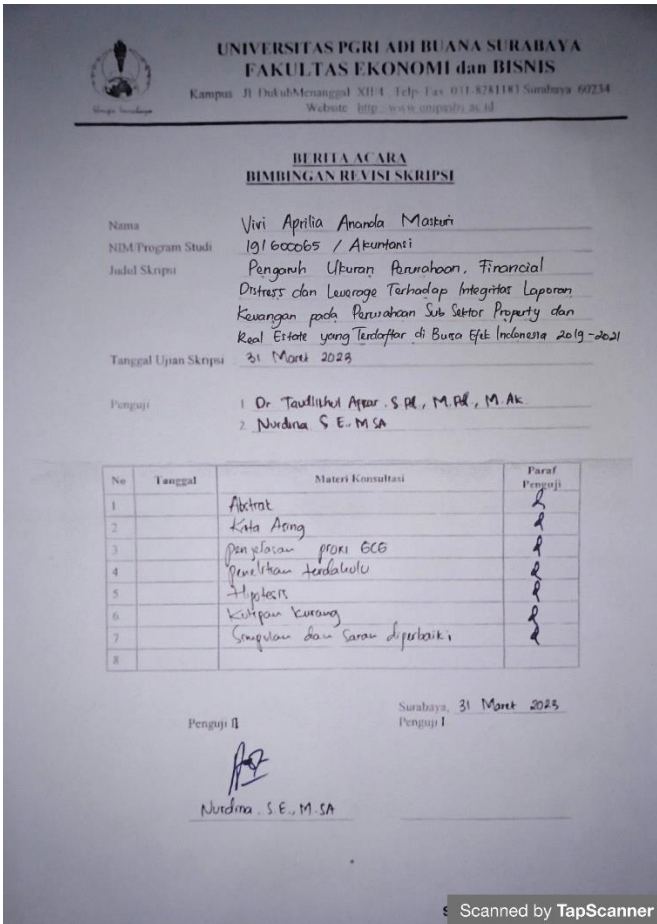 UNIVERSITAS PGRI ADI BUANA SURABAYA
FAKULTAS EKONOMI dan BISNIS
Kampus Jl DukuhMenanggal XII/4 Telp Fax 031-8281183 Surabaya 60234
Website http
BERITA ACARA
BIMBINGAN REVISI SKRIPSI
Nama Vivi Aprilia Ananda Maskuri
NIM/Program Studi 191600065 / Akuntansi
Judul Skripsi Pengaruh Ukuran Perusahaan, Financial
Distress dan Leverage Terhadap Integritas Laporan
Keuangan pada Perusahaan Sub Sektor Property dan
Real Estate yang Terdaftar di Bursa Efek Indonesia 2019-2021
Tanggal Ujian Skripsi 31 Maret 2023
Penguji 1 Dr S.Pd, M.Pd, M.Ak.
2 Nurdina S.E., M.SA
No Tanggal Materi Konsultasi Paraf Penguji
1 Abstrak
2 Kata Asing
3 penjelasan proxi GCG
4 Penelitian terdahulu
5 Hipotesis
6 Kutipan kurang
7 Simpulan dan saran diperbaiki
8
Surabaya, 31 Maret 2023
Penguji II Penguji I
Nurdina. S.E., M.SA
Scanned by TapScanner